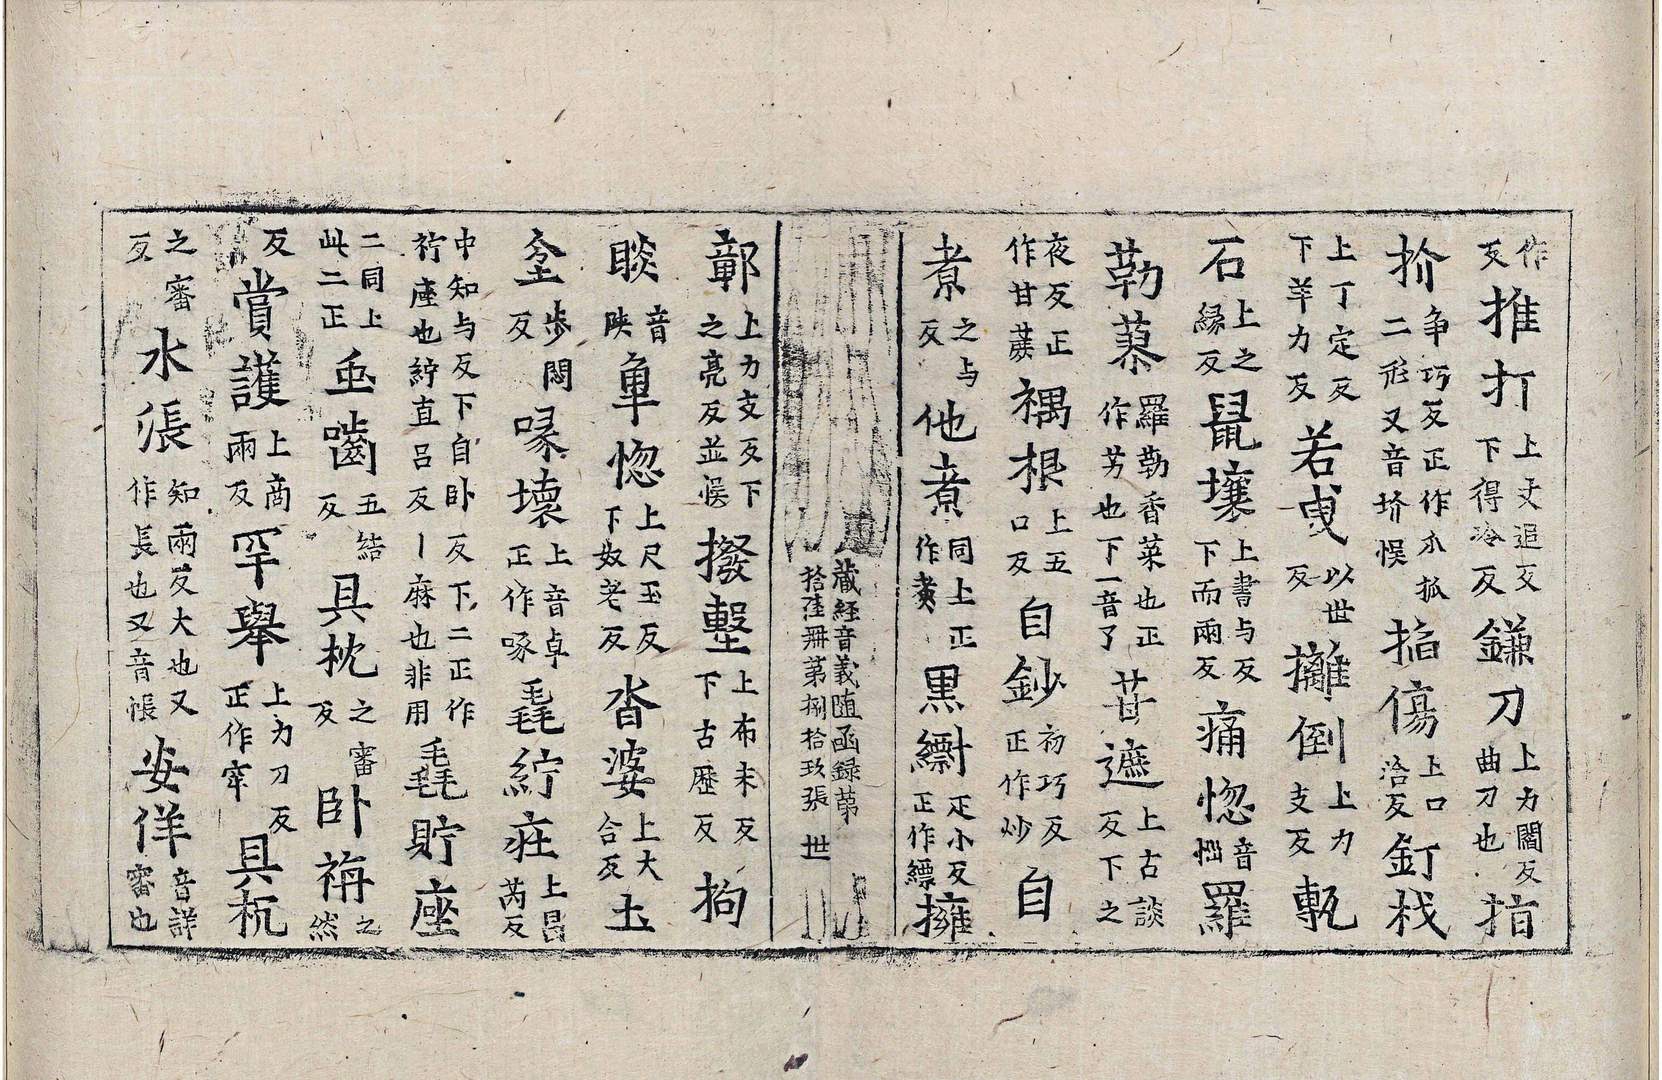 作反推打上丈追反下得冷反鎌刀上力閻反曲刀也指
扴争巧反正作爪㧓二形又音㧒悮掐傷上口洽反釘栈
上丁定反下羊力反若曳以世反攡倒上力支反㼾
石上之縁反鼠壤上書与反下而兩反痛惚音㤋羅
勒䒳羅勒香菜也正作艻也下一音了苷遮上古談反下之
夜反正作甘蔗䙔根上五口反自鈔初巧反正作炒自
煮之与反他煮同上正作煑黒䌰疋小反正作縹擁
藏經音義随函録苐
拾壹冊第捌拾玖張 世
鄣上力支反下之亮反並悮撥墼上布末反下古歷反拘
睒音陜㒷惚上尺玉反下奴老反沓婆上大合反圡
坌歩悶反喙壊上音卓正作啄毳紵㽵上昌芮反
中知与反下自卧反下二正作竚座也紵直吕反丨麻也非用毳貯座
二同上此二正䖝嚙五結反具枕之審反卧裑之然
反賞護上商兩反罕舉上力刀反正作牢具杭
之審反水漲知兩反大也又作長也又音悵安佯音詳審也